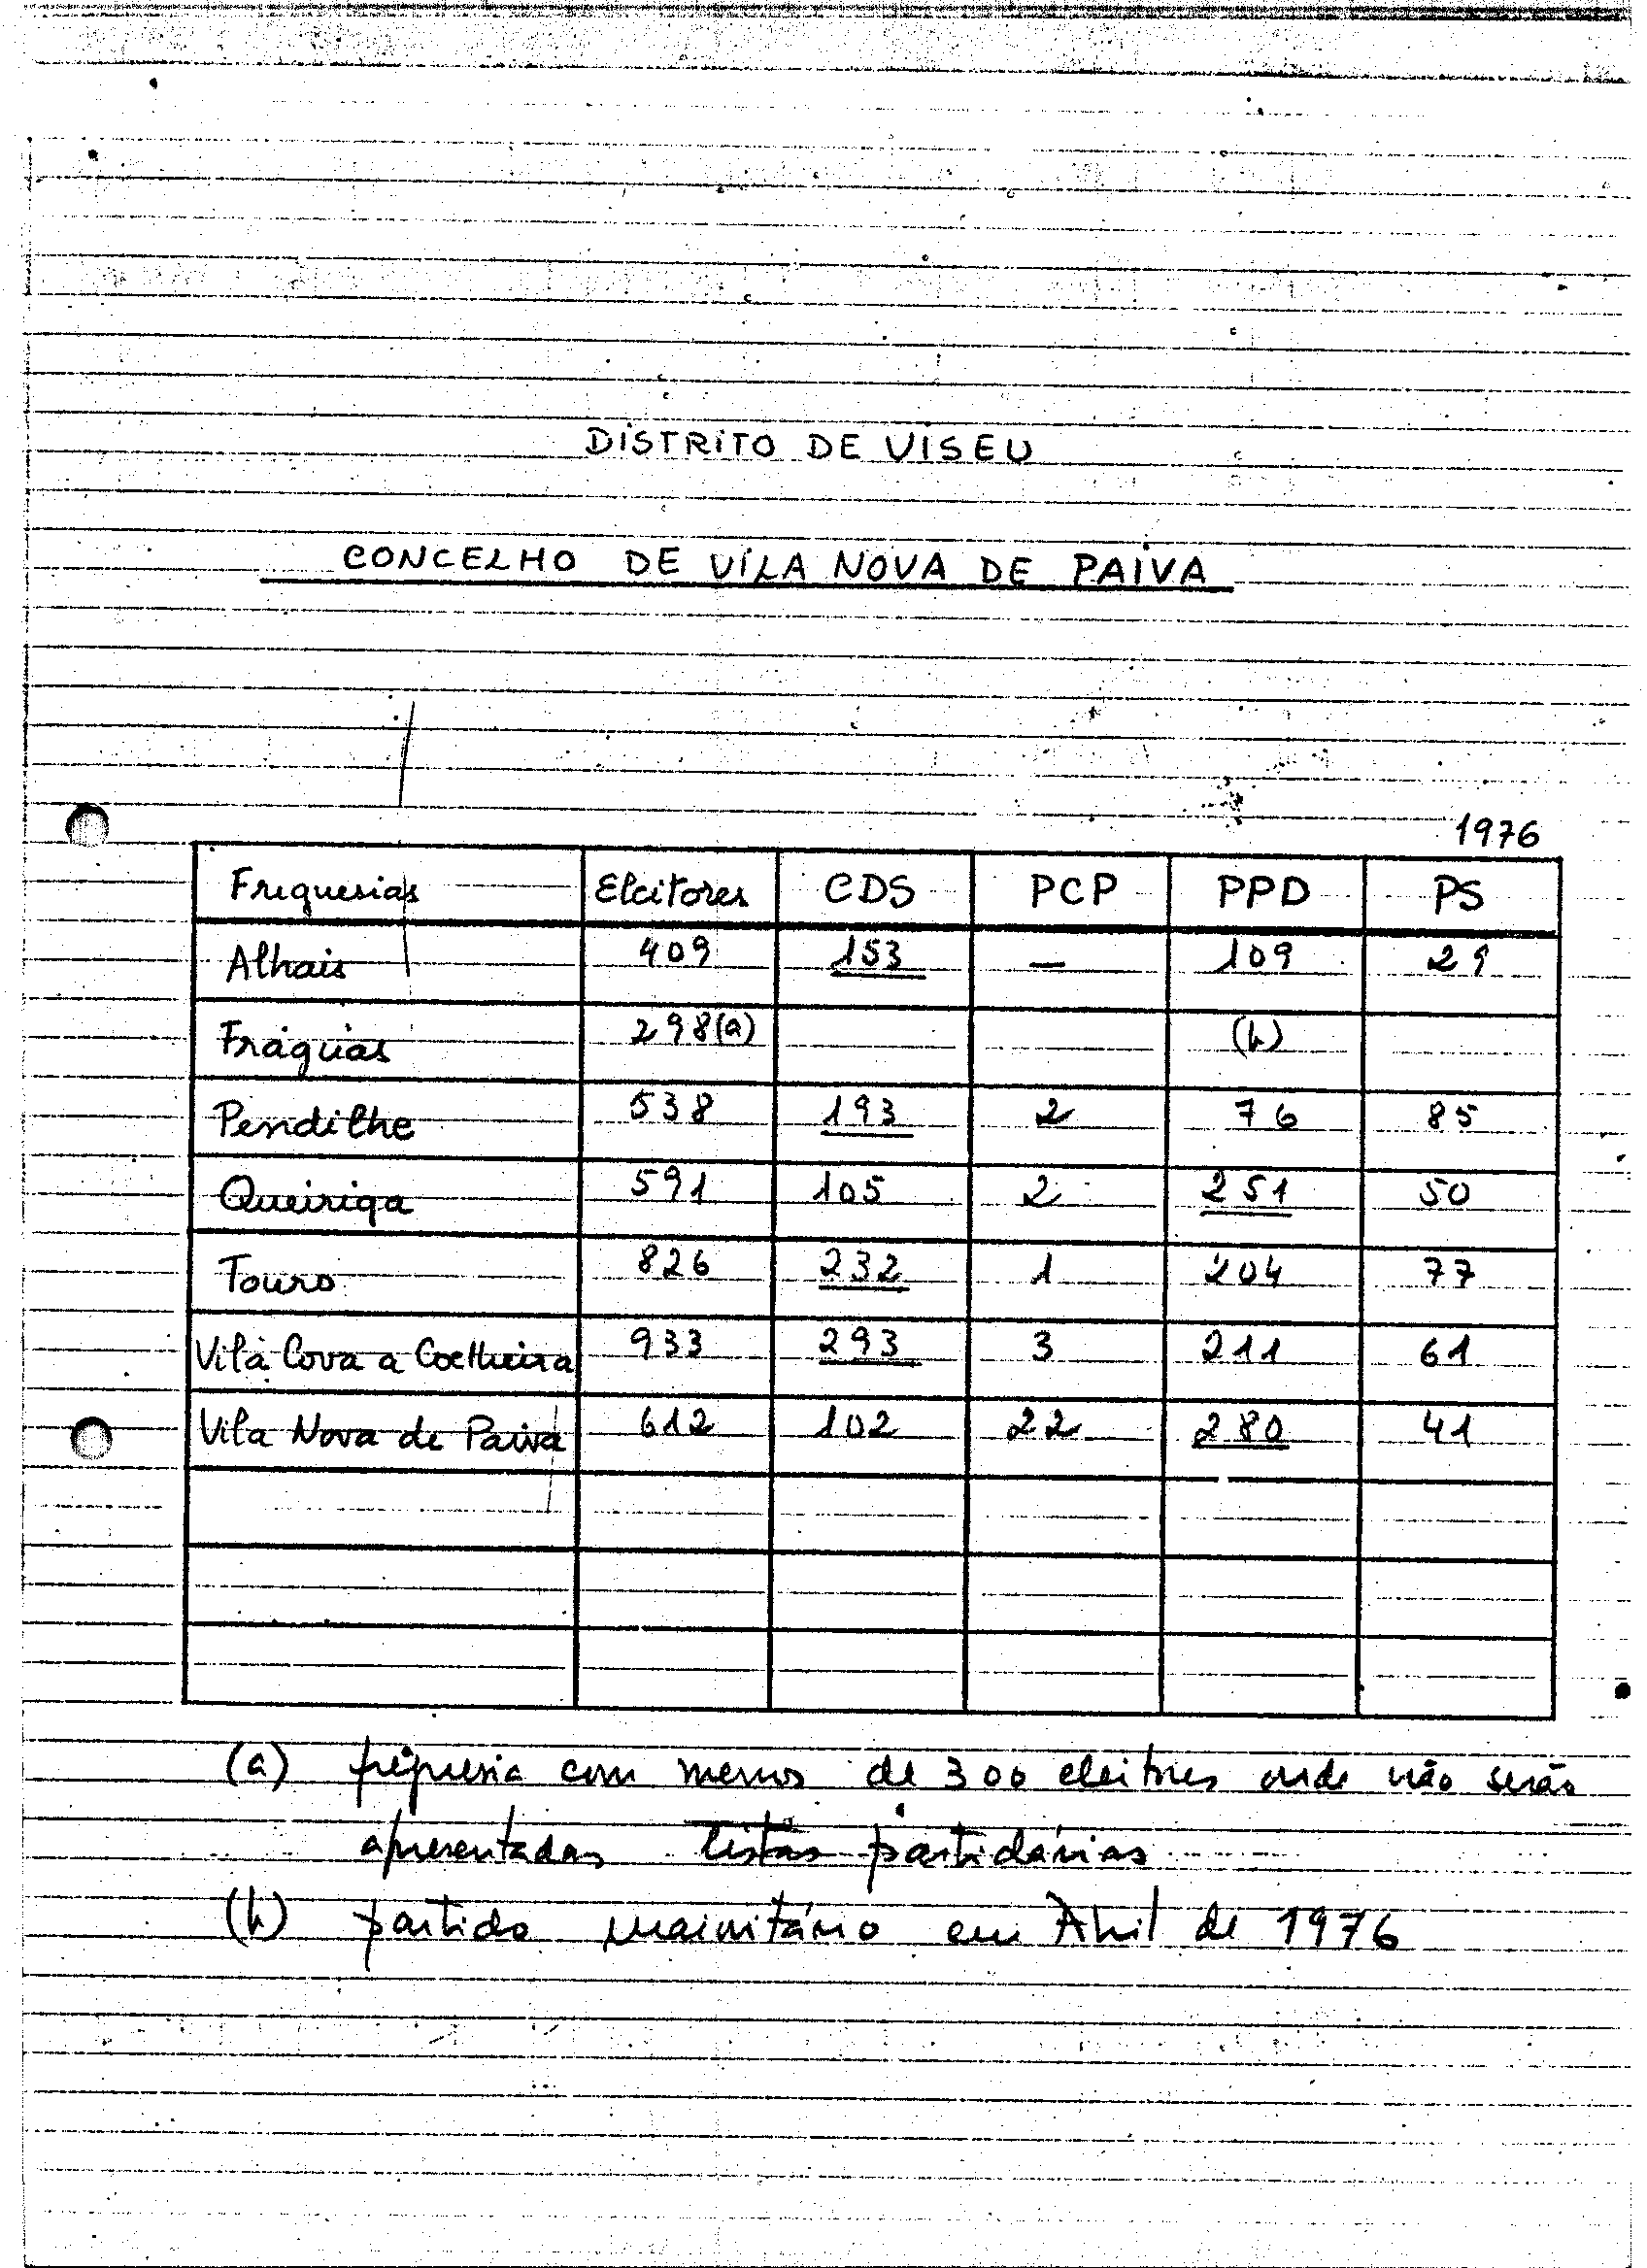 DISTRITO DE VISEU
CONCELHO DE VILA NOVA DE PAIVA
1976
Freguesias Eleitores CDS PCP PPD PS
Alhais 409 153 — 109 29
Fráguas 298(a) (b)
Pendilhe 538 193 2 76 85
Queiriga 591 105 2 251 50
Touro 826 232 1 204 77
Vila Cova a Coelheira 933 293 3 211 61
Vila Nova de Paiva 612 102 22 280 41
(a) freguesia com menos de 300 eleitores onde não serão
apresentadas listas partidárias
(b) partido maioritário em Abril de 1976